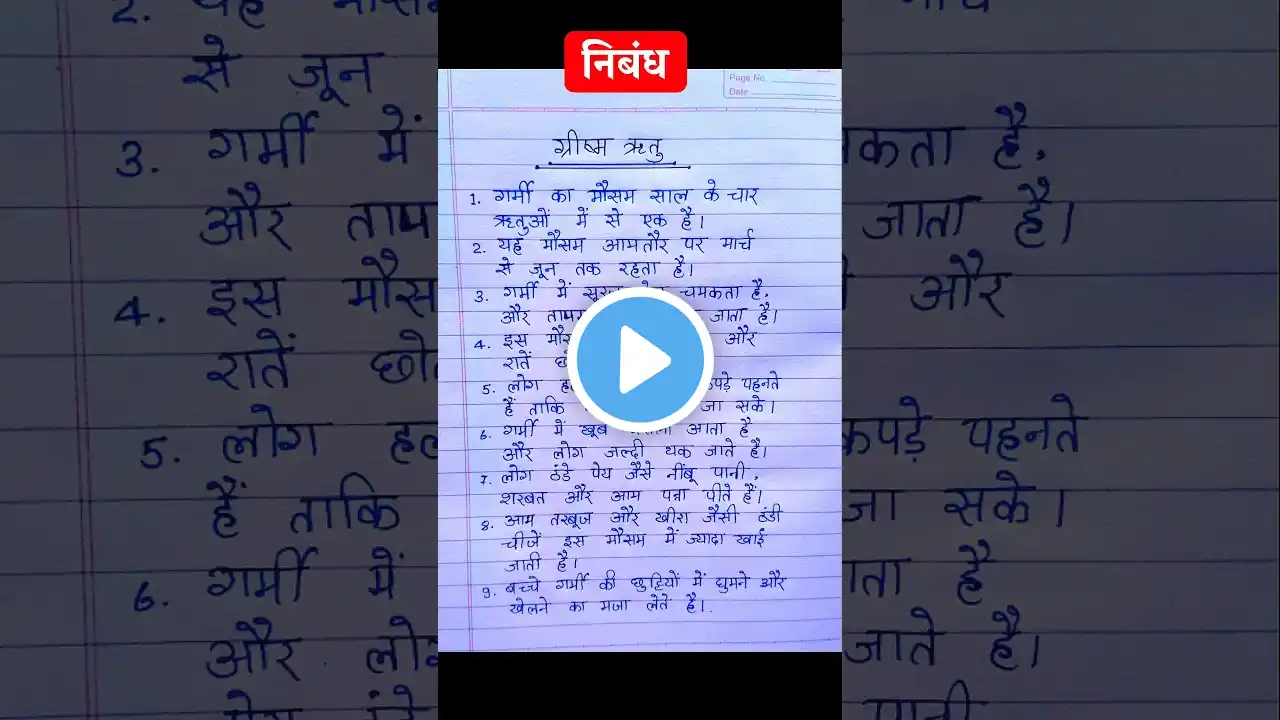 निबंध
Page No.
Date
ग्रीष्म ऋतु
1. गर्मी का मौसम साल के चार
ऋतुओं में से एक है।
2. यह मौसम आमतौर पर मार्च
से जून तक रहता है।
3. गर्मी में चमकता है,
और जाता है।
4. इस और
रातें
5. लोग पहनते
हैं ताकि जा सके।
6. गर्मी में खूब आता है
और लोग जल्दी थक जाते है।
7. लोग ठंडे पेय जैसे नींबू पानी,
शरबत और आम पन्ना पीते हैं।
8. आम तरबूज और खीरा जैसी ठंडी
चीजें इस मौसम में ज्यादा खाई
जाती है।
9. बच्चे गर्मी की छुट्टियों में घुमने और
खेलने का मजा लेते है।
से जून
3. गर्मी में
और
4. इस
रातें
5. लोग
हैं ताकि
6. गर्मी में
और
है,
जाता है।
और
पहनते
जा सके।
है
जाते है।